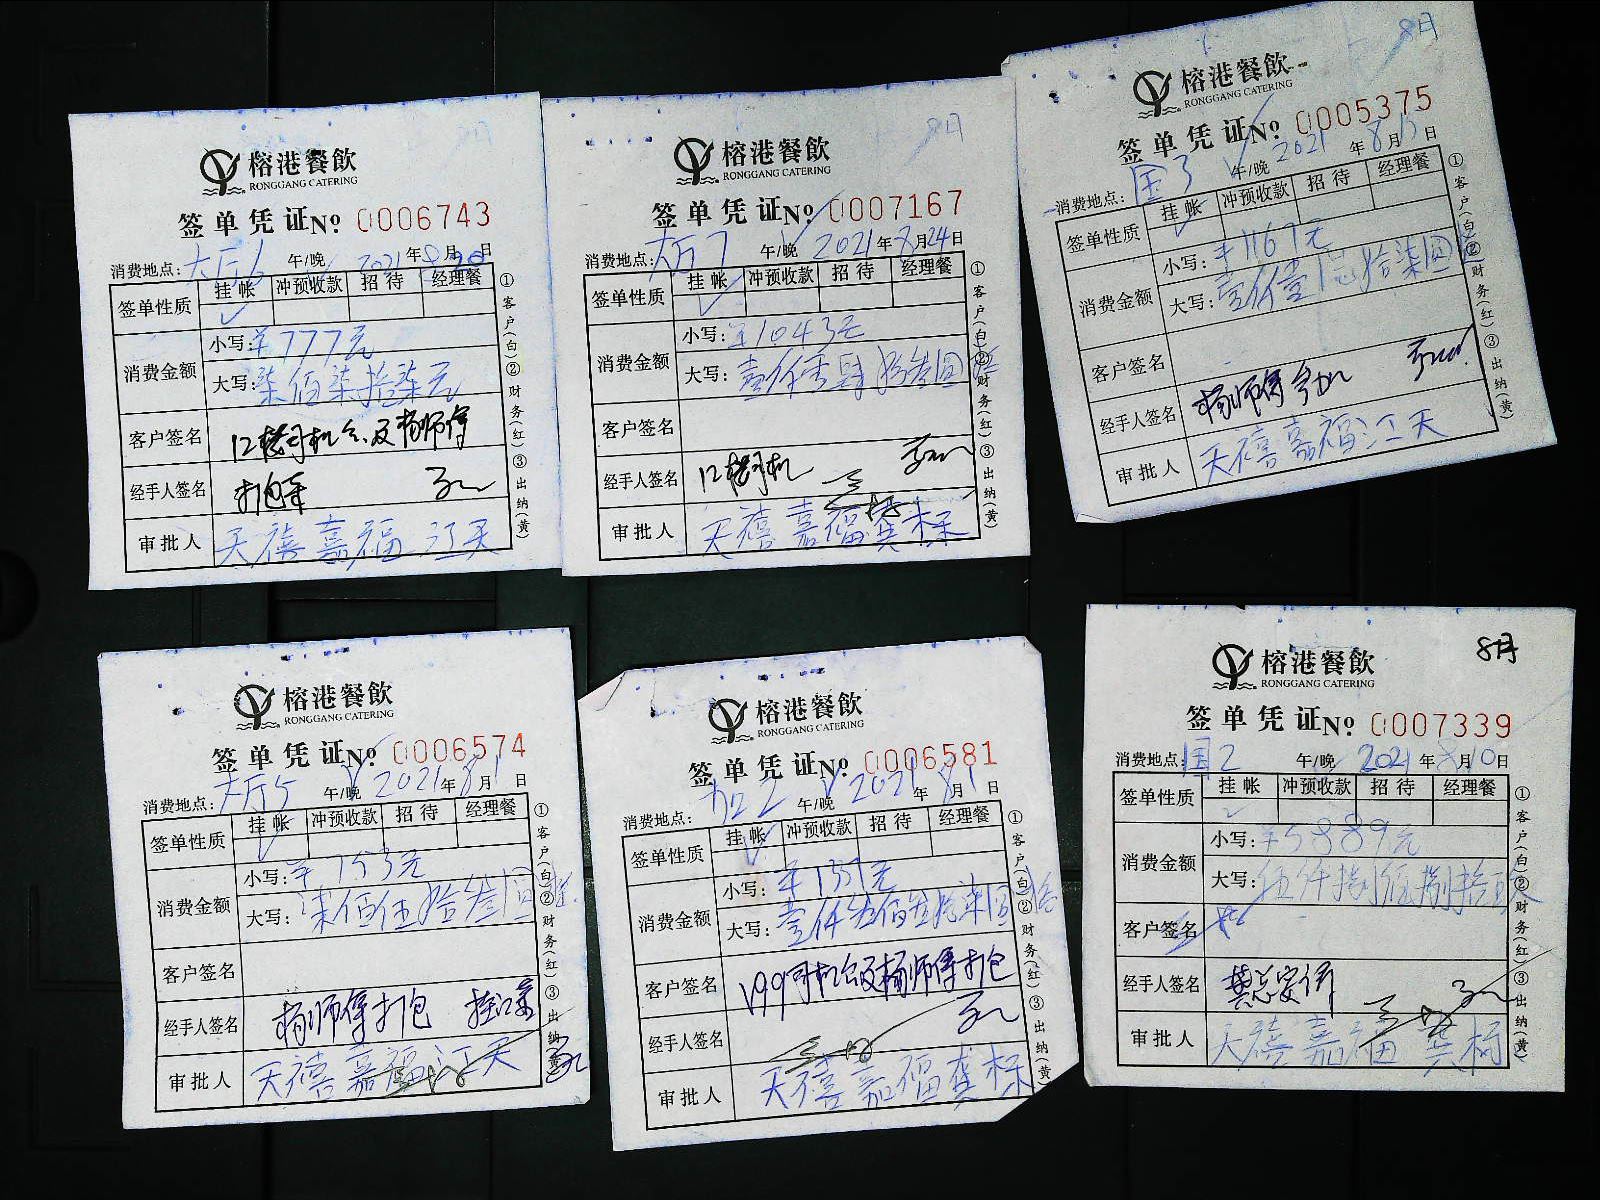 榕港餐飲
RONGGANG CATERING
签单凭证№ 0006743
消费地点: 大厅6 午/晚 2021年8月30日
签单性质 挂帐 冲预收款 招待 经理餐
消费金额 小写: ¥777元
大写: 柒佰柒拾柒元
客户签名
经手人签名
审批人 天禧嘉福 江天
①客户(白)②财务(红)③出纳(黄)
8月
榕港餐飲
RONGGANG CATERING
签单凭证№ 0007167
消费地点: 大厅7 午/晚 2021年8月24日
签单性质 挂帐 冲预收款 招待 经理餐
消费金额 小写: ¥1043元
大写: 壹仟零肆拾叁圆
客户签名
经手人签名 12楼司机
审批人 天禧嘉福龚
①客户(白)②财务(红)③出纳(黄)
8月
榕港餐飲
RONGGANG CATERING
签单凭证№ 0005375
消费地点: 国3 午/晚 2021年8月13日
签单性质 挂帐 冲预收款 招待 经理餐
消费金额 小写: ¥1167元
大写: 壹仟壹佰 拾柒圆
客户签名
经手人签名 杨师傅
审批人 天禧嘉福江天
①客户(白)②财务(红)③出纳(黄)
榕港餐飲
RONGGANG CATERING
签单凭证№ 0006574
消费地点: 大厅5 午/晚 2021年8月1日
签单性质 挂帐 冲预收款 招待 经理餐
消费金额 小写: ¥753元
大写: 柒佰伍拾叁圆
客户签名
经手人签名 杨师傅打包
审批人 天禧嘉福江天
①客户(白)②财务(红)③出纳(黄)
榕港餐飲
RONGGANG CATERING
签单凭证№ 0006581
消费地点: 2 午/晚 2021年8月1日
签单性质 挂帐 冲预收款 招待 经理餐
消费金额 小写:
大写: 壹仟 佰 拾柒圆
客户签名 199司机 及杨师傅打包
经手人签名
审批人 天禧嘉福龚
①客户(白)②财务(红)③出纳(黄)
8月
榕港餐飲
RONGGANG CATERING
签单凭证№ 0007339
消费地点: 国2 午/晚 2021年8月10日
签单性质 挂帐 冲预收款 招待 经理餐
消费金额 小写: ¥5889元
大写: 伍仟捌佰捌拾玖
客户签名
经手人签名 龚总安排
审批人 天禧嘉福 龚
①客户(白)②财务(红)③出纳(黄)